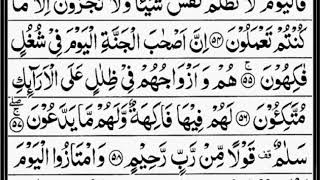 فَالْيَوْمَ لَا تُظْلَمُ نَفْسٌ شَيْئًا وَّلَا تُجْزَوْنَ اِلَّا مَا
كُنْتُمْ تَعْمَلُوْنَ ۝۵۴ اِنَّ اَصْحٰبَ الْجَنَّةِ الْيَوْمَ فِيْ شُغُلٍ
فٰكِهُوْنَ ۝۵۵ هُمْ وَاَزْوَاجُهُمْ فِيْ ظِلٰلٍ عَلَى الْاَرَآئِكِ
مُتَّكِـُٔوْنَ ۝۵۶ لَهُمْ فِيْهَا فَاكِهَةٌ وَّلَهُمْ مَّا يَدَّعُوْنَ ۝۵۷
سَلٰمٌ ۫ قَوْلًا مِّنْ رَّبٍّ رَّحِيْمٍ ۝۵۸ وَامْتَازُوا الْيَوْمَ